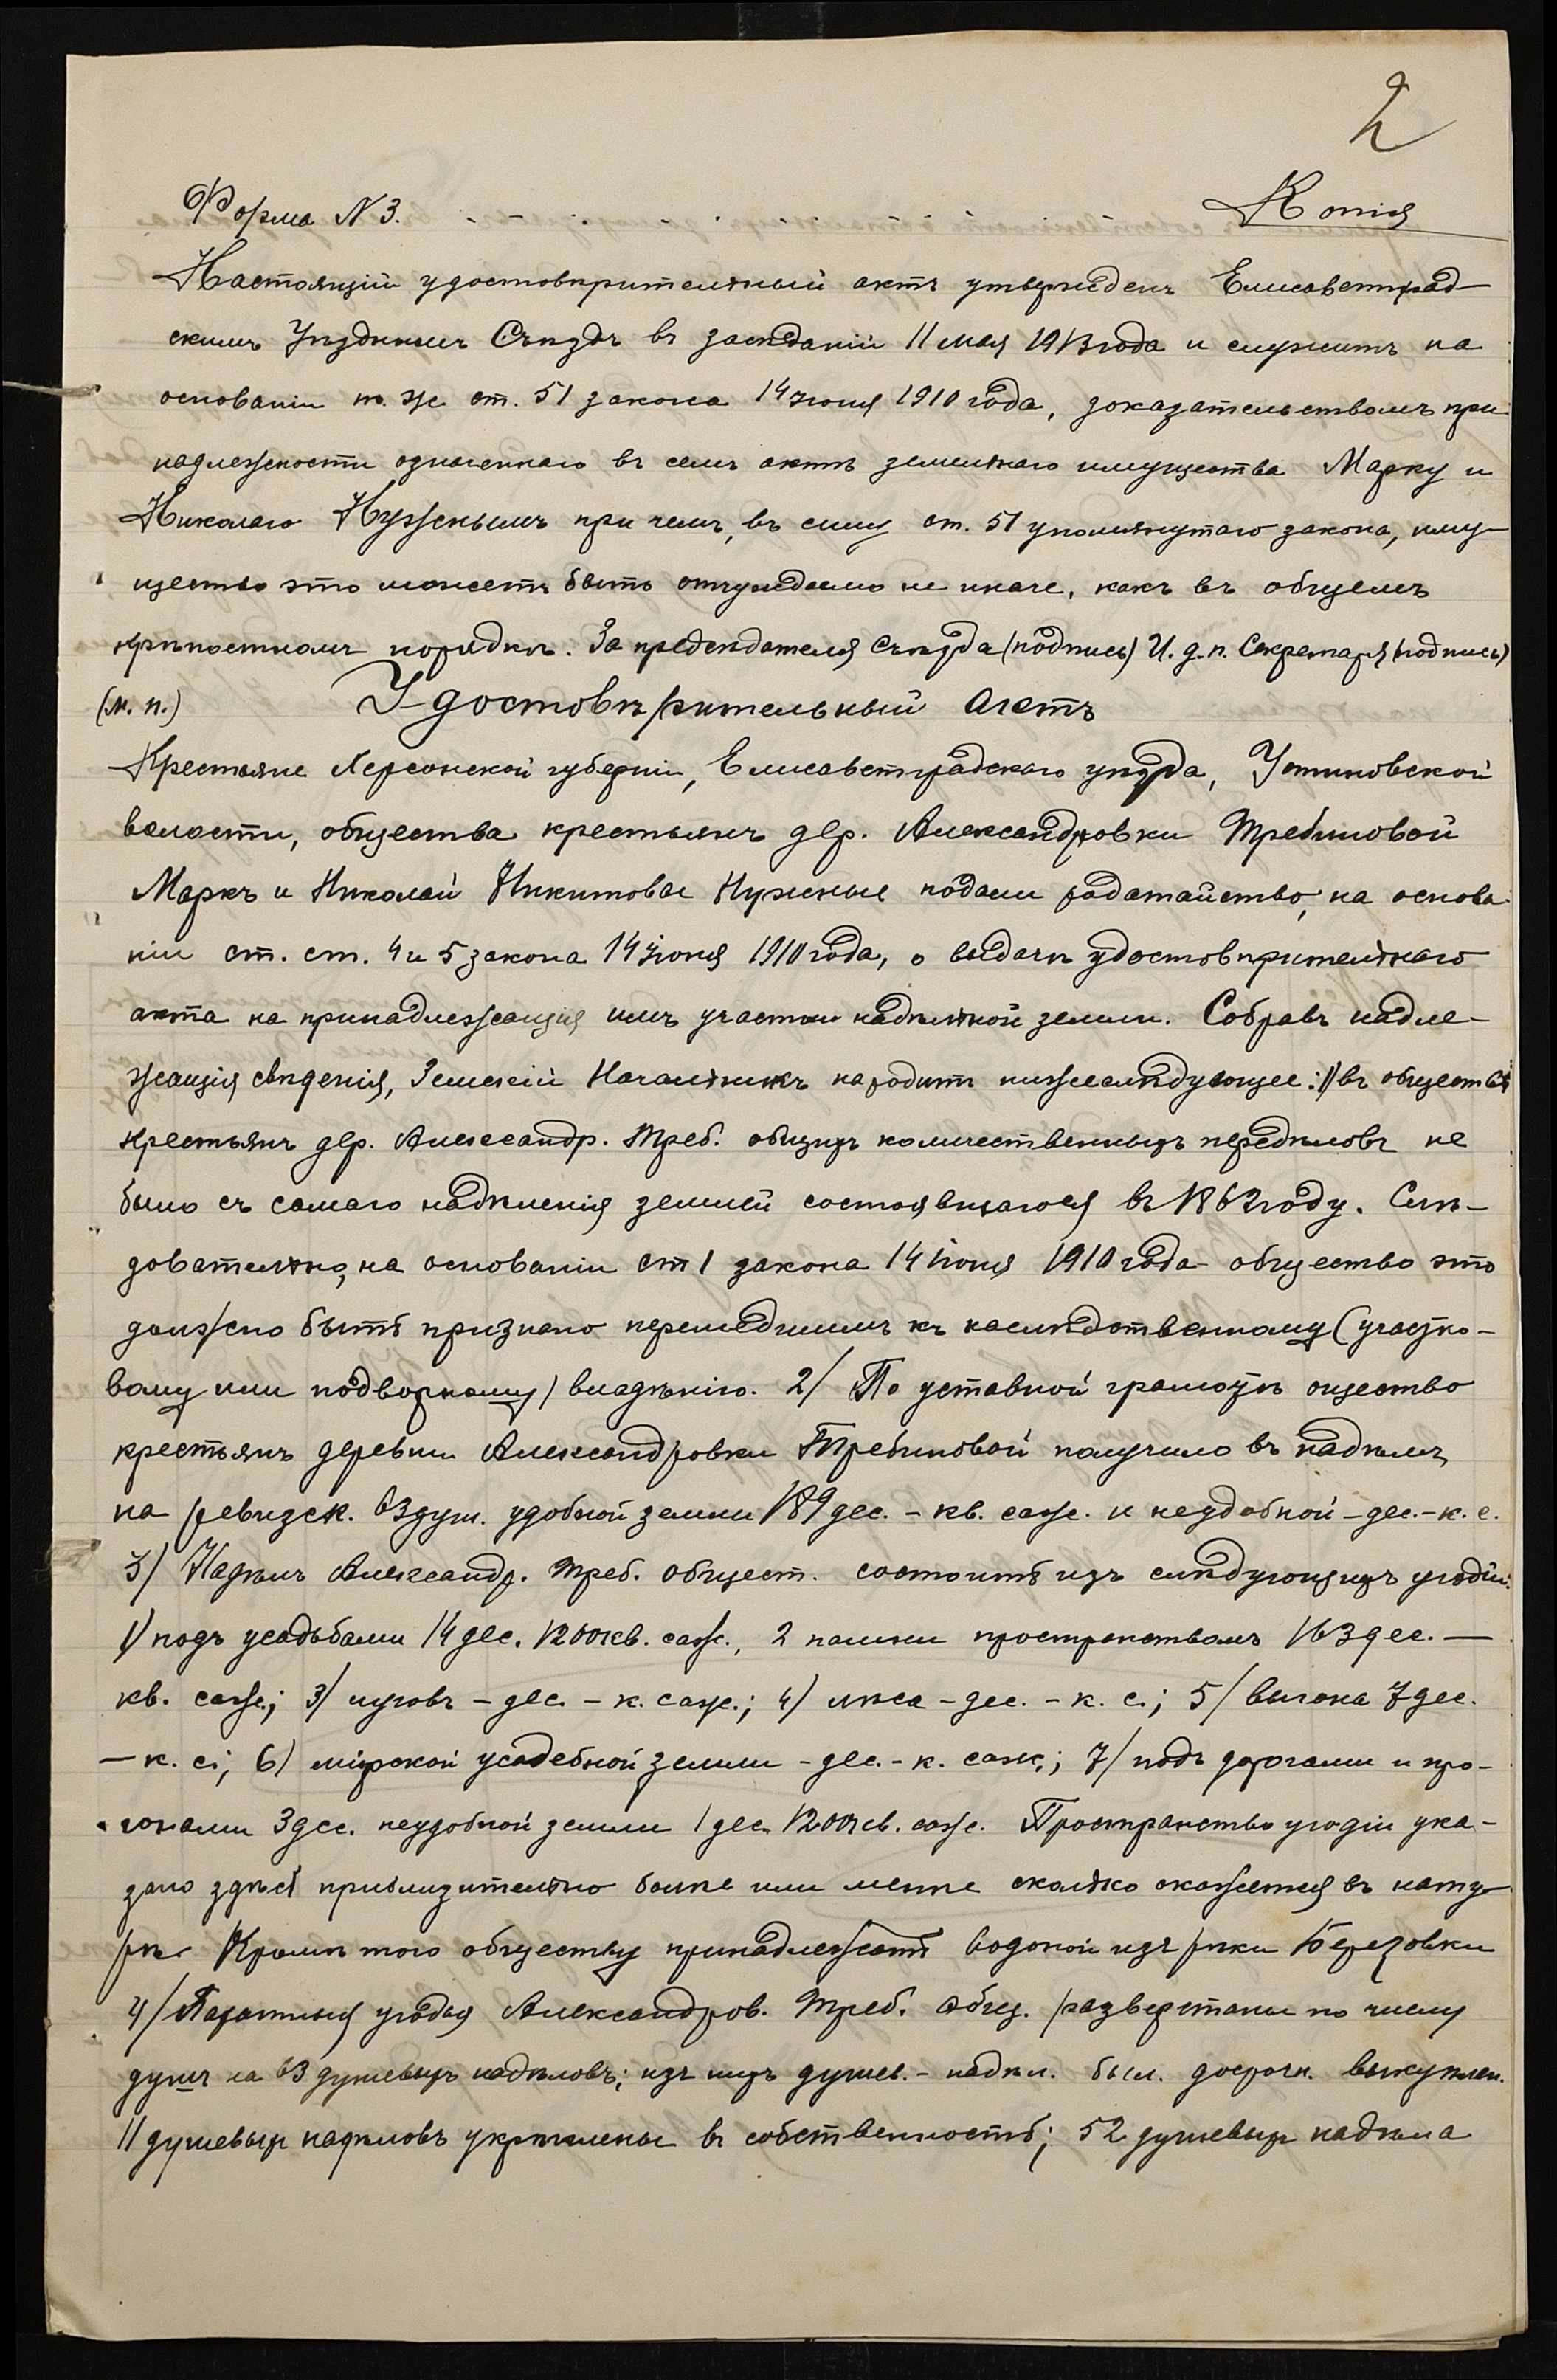 2
Форма N 3. Копія
Настоящій удостовѣрительный актъ утвержденъ Елисаветград-
скимъ Уѣзднымъ Съѣздъ въ засѣданіи 11 мая 1913 года и служитъ на
основаніи т. же ст. 51 закона 14 іюня 1910 года, доказательствомъ при-
надлежности означеннаго въ семъ актѣ земельнаго имущества Марку и
Николаю Нужнымъ при чемъ, въ силу ст. 51 упомянутаго закона, иму-
щество это можетъ быть отчуждаемо не иначе, какъ въ общемъ
крѣпостномъ порядкѣ. За предсѣдателя Съѣзда (подпись) И. д. п. Секретаря (подпись)
(м. п.) Удостовѣрительный Актъ
Крестьяне Херсонской губерніи, Елисаветградскаго уѣзда, Устиновской
волости, общества крестьянъ дер. Александровки Требиновой
Маркъ и Николай Никитовы Нужные подали ходатайство, на основа-
ніи ст. ст. 4 и 5 закона 14 іюня 1910 года, о выдачѣ удостовѣрительнаго
акта на принадлежащія имъ участки надѣльной земли. Собравъ надле-
жащія свѣденія, Земскій Начальникъ находитъ нижеслѣдующее: 1) въ обществѣ
крестьянъ дер. Александр. Треб. общихъ количественныхъ передѣловъ не
было съ самаго надѣленія землей состоявшагося въ 1862 году. Слѣ-
довательно, на основаніи ст 1 закона 14 іюня 1910 года общество это
должно быть признано перешедшимъ къ наслѣдственному (участко-
вому или подворному) владѣнію. 2/ По уставной грамотѣ ощество
крестьянъ деревни Александровки Требиновой получило въ надѣлъ
на ревизск. 63 душ. удобной земли 189 дес. - кв. саж. и неудобной - дес. - к. с.
3/ Надѣлъ Александр. Треб. общест. состоитъ изъ слѣдующихъ угодій:
1) подъ усадьбами 14 дес. 1200 кв. саж., 2 пашни пространствомъ 163 дес. —
кв. саж.; 3/ луговъ - дес. - к. саж.; 4) лѣса - дес. - к. с.; 5/ выгона 7 дес.
— к. с; 6) мірской усадебной земли - дес. - к. саж.; 7/ подъ дорогами и про-
гонами 3 дес. неудобной земли 1 дес. 1200 кв. саж. Пространство угодій ука-
зано здѣсь приблизительно болѣе или менѣе сколько окажется въ нату-
рѣ. Кромѣ того обществу принадлежатъ водопой изъ рѣки Березовки
4/ Пахатныя угодья Александров. Треб. Общ. разверстаны по числу
душъ на 63 душевыхъ надѣловъ; изъ нихъ душев. - надѣл. был. досрочн. выкуплен.
11 душевыхъ надѣловъ укрѣплены въ собственность; 52 душевыхъ надѣла